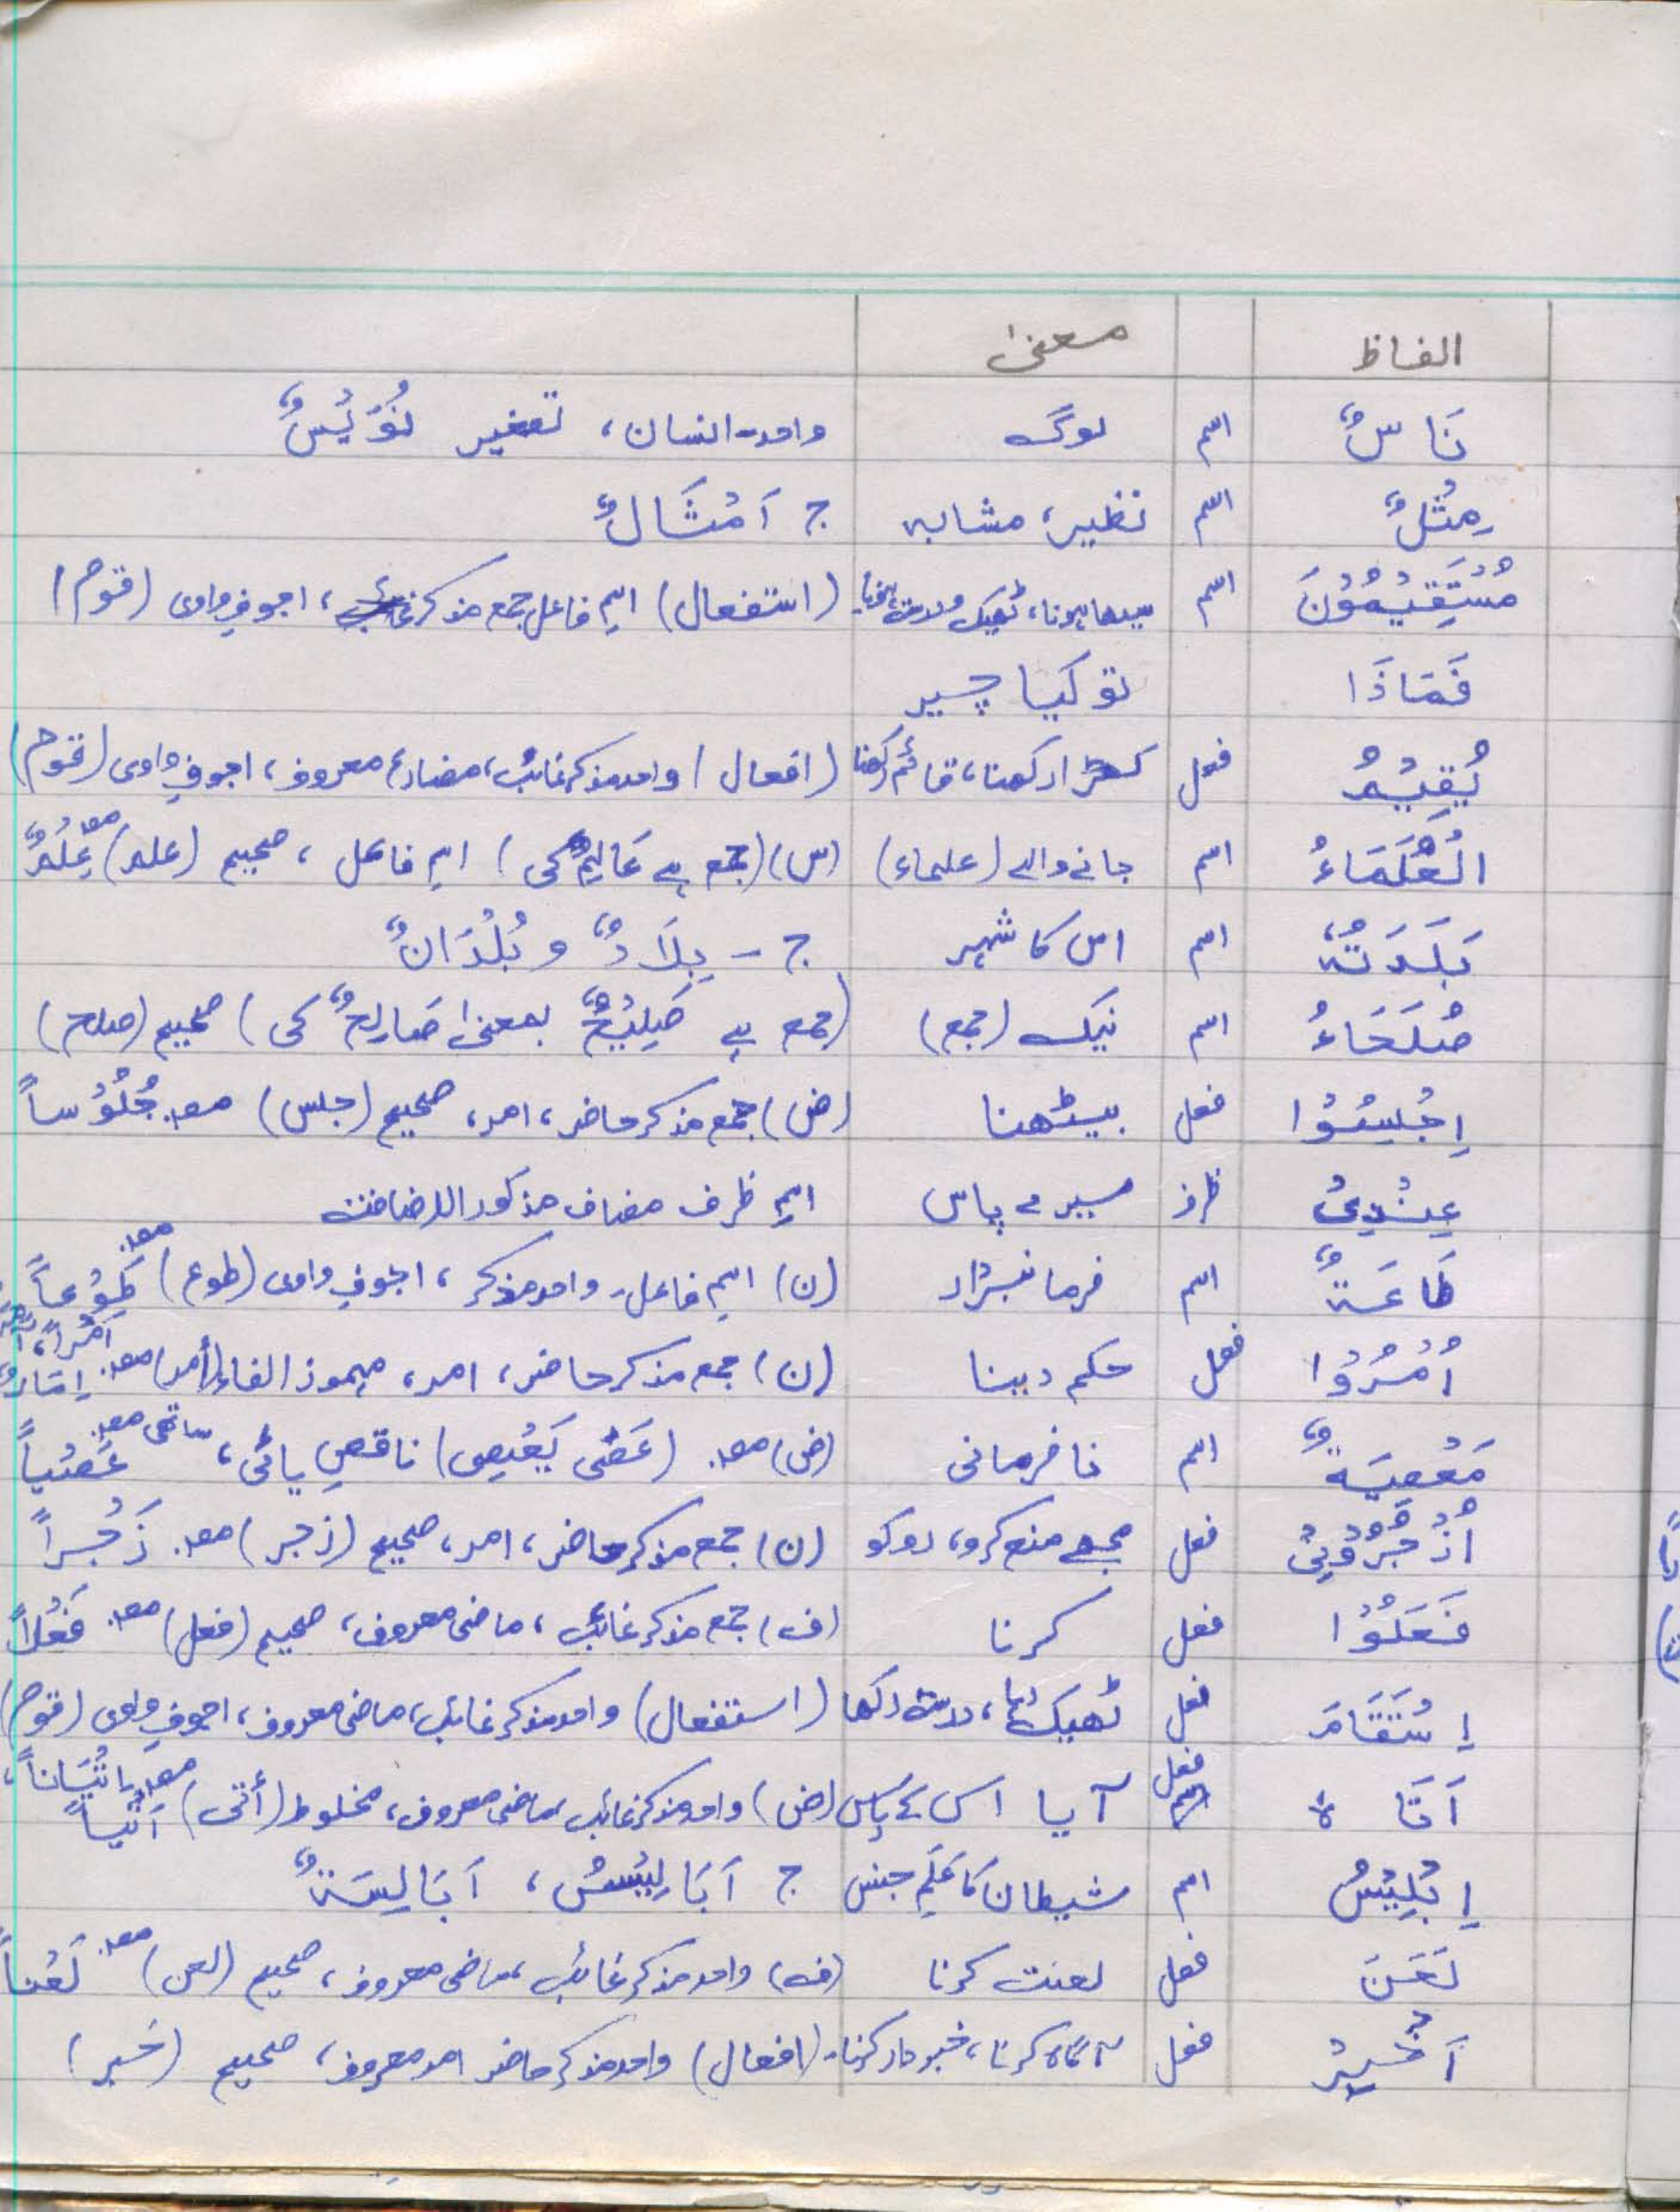 الفاظ معنیٰ
نَاسٌ اسم لوگ واحد-انسان، تصغیر نُوَیْسٌ
مِثْلٌ اسم نظیر، مشابہ ج اَمْثَالٌ
مُسْتَقِیْمُوْنَ اسم سیدھا ہونا، ٹھیک و درست (استفعال) اسمِ فاعل جمع مذکر، اجوفِ واوی (قوم)
فَمَاذَا تو کیا چیز
یُقِیْمُ فعل کھڑا رکھنا، قائم رکھنا (افعال) واحد مذکر غائب، مضارع معروف، اجوفِ واوی (قوم)
الْعُلَمَاءُ اسم جاننے والے (علماء) (س) (جمع ہے عَالِمٌ کی) اسمِ فاعل، صحیح (علم) مصد عِلْمٌ
بَلَدَتُہٗ اسم اس کا شہر ج - بِلَادٌ و بُلْدَانٌ
صُلَحَاءُ اسم نیک (جمع) (جمع ہے صَلِیْحٌ بمعنیٰ صَالِحٌ کی) صحیح (صلح)
اِجْلِسُوْا فعل بیٹھنا (ض) جمع مذکر حاضر، امر، صحیح (جلس) مصد جُلُوْساً
عِنْدِیْ ظرف میرے پاس اسمِ ظرف مضاف مذکور الاضافت
طَاعَۃٌ اسم فرمانبردار (ن) اسمِ فاعل، واحد مذکر، اجوفِ واوی (طوع) مصد طَوْعاً
اُمْرُوْا فعل حکم دینا (ن) جمع مذکر حاضر، امر، مہموز الفاء (أمر) مصد اَمْراً، اِمَارٌ
مَعْصِیَۃٌ اسم نافرمانی (ض) مصد (عَصٰی یَعْصِی) ناقصِ یائی، ساتھی مصد عَصْیاً
اُزْجُرُوْنِیْ فعل مجھے منع کرو، روکو (ن) جمع مذکر حاضر، امر، صحیح (زجر) مصد زَجْراً
فَعَلُوْا فعل کرنا (ف) جمع مذکر غائب، ماضی معروف، صحیح (فعل) مصد فَعْلاً
اِسْتَقَامَ فعل ٹھیک رہا، درست رکھا (استفعال) واحد مذکر غائب، ماضی معروف، اجوفِ واوی (قوم)
اَتَا ہُ فعل آیا اس کے پاس (ض) واحد مذکر غائب، ماضی معروف، مخلوط (أتی) مصد اِتْیَاناً، اَتْیاً
اِبْلِیْسُ اسم شیطان کا عَلَمِ جنس ج اَبَالِیْسُ، اَبَالِسَۃٌ
لَعَنَ فعل لعنت کرنا (ف) واحد مذکر غائب، ماضی معروف، صحیح (لعن) مصد لَعْناً
اَخْبِرْ فعل آگاہ کرنا، خبردار کرنا۔ (افعال) واحد مذکر حاضر امر معروف، صحیح (خبر)